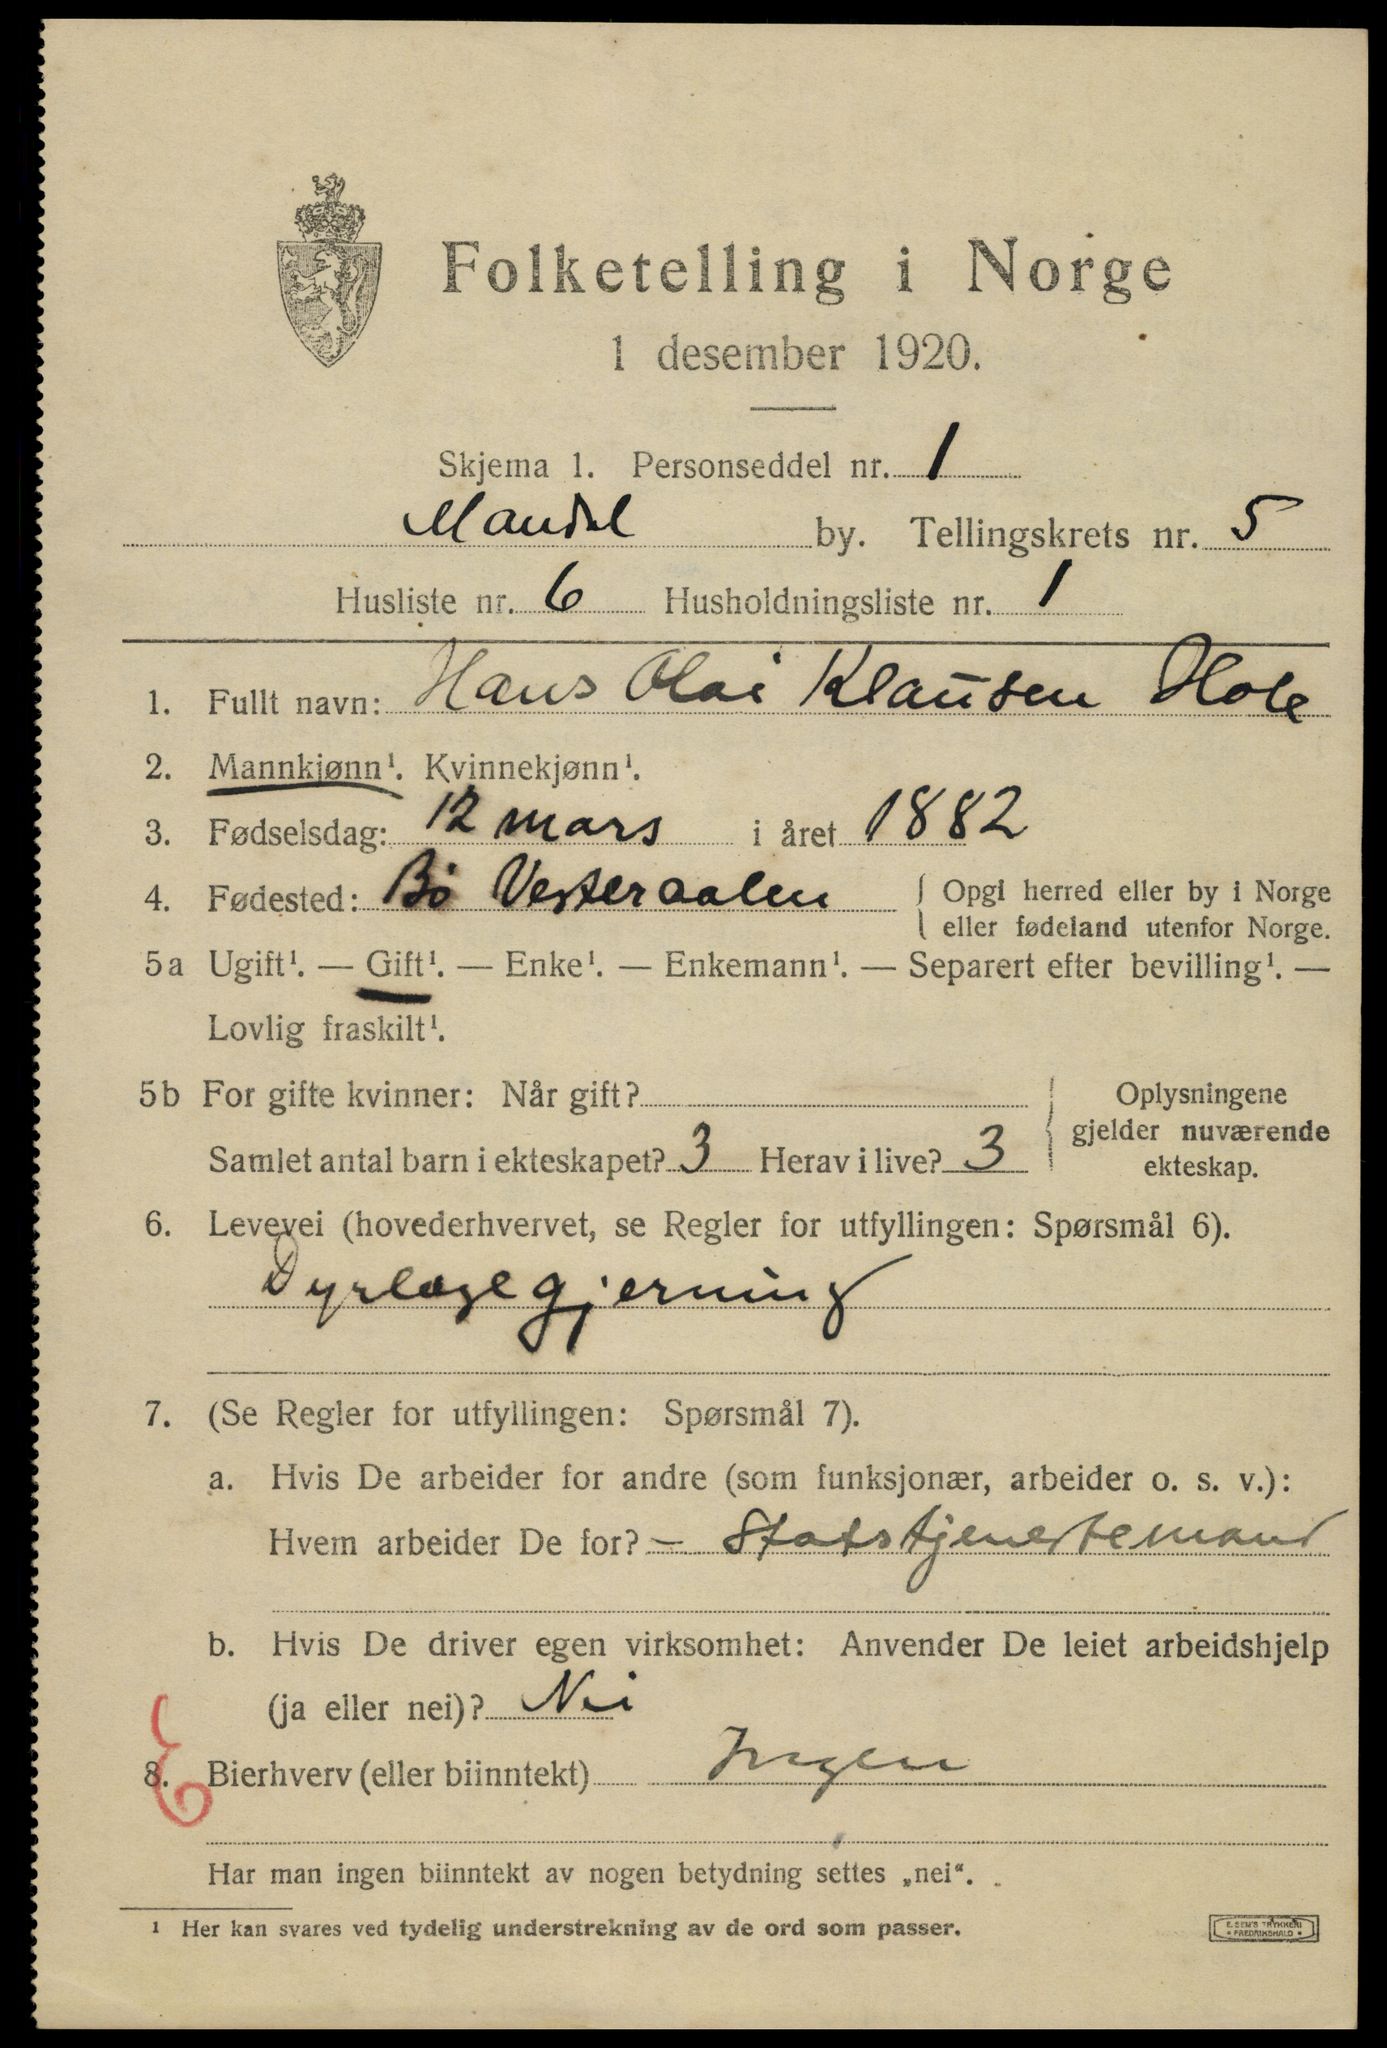 Folketelling i Norge
1 desember 1920.
Skjema 1. Personseddel nr. 1
Mandal by. Tellingskrets nr. 5
Husliste nr. 6 Husholdningsliste nr. 1
1. Fullt navn: Hans Olai Klausen Hole
2. Mannkjønn¹. Kvinnekjønn¹.
3. Fødselsdag: 12 mars i året 1882
4. Fødested: Bø Vesteraalen { Opgi herred eller by i Norge
eller fødeland utenfor Norge.
5a Ugift¹. — Gift¹. — Enke¹. — Enkemann¹. — Separert efter bevilling¹. —
Lovlig fraskilt¹.
5b For gifte kvinner: Når gift? Oplysningene
gjelder nuværende
Samlet antal barn i ekteskapet? 3 Herav i live? 3 ekteskap.
6. Levevei (hovederhvervet, se Regler for utfyllingen: Spørsmål 6).
Dyrlægegjerning
7. (Se Regler for utfyllingen: Spørsmål 7).
a. Hvis De arbeider for andre (som funksjonær, arbeider o. s. v.):
Hvem arbeider De for? – Statstjenestemand
b. Hvis De driver egen virksomhet: Anvender De leiet arbeidshjelp
(ja eller nei)? Nei
8. Bierhverv (eller biinntekt) Ingen
Har man ingen biinntekt av nogen betydning settes „nei“.
¹ Her kan svares ved tydelig understrekning av de ord som passer.
E. SEM'S TRYKKERI
* FREDRIKSHALD *